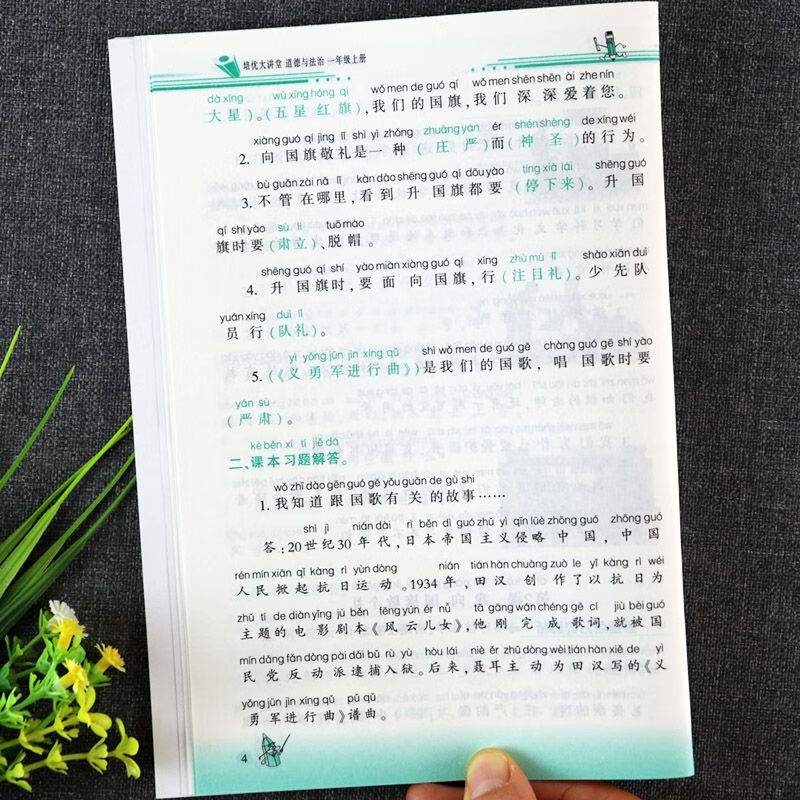 培优大讲堂 道德与法治 一年级上册
dà xīng wǔ xīng hóng qí wǒ men de guó qí wǒ men shēn shēn ài zhe nín
大星)。(五星红旗),我们的国旗,我们深深爱着您。
xiàng guó qí jìng lǐ shì yì zhǒng zhuāng yán ér shén shèng de xíng wéi
2. 向国旗敬礼是一种(庄严)而(神圣)的行为。
bù guǎn zài nǎ lǐ kàn dào shēng guó qí dōu yào tíng xià lái shēng guó
3. 不管在哪里,看到升国旗都要(停下来)。升国
qí shí yào sù lì tuō mào
旗时要(肃立)、脱帽。
shēng guó qí shí yào miàn xiàng guó qí xíng zhù mù lǐ shào xiān duì
4. 升国旗时,要面向国旗,行(注目礼)。少先队
yuán xíng duì lǐ
员行(队礼)。
yì yǒng jūn jìn xíng qǔ shì wǒ men de guó gē chàng guó gē shí yào
5. (《义勇军进行曲》)是我们的国歌,唱国歌时要
yán sù
(严肃)。
kè běn xí tí jiě dá
二、课本习题解答。
wǒ zhī dào gēn guó gē yǒu guān de gù shi
1. 我知道跟国歌有关的故事……
shì jì nián dài rì běn dì guó zhǔ yì qīn lüè zhōng guó zhōng guó
答:20世纪30年代,日本帝国主义侵略中国,中国
rén mín xiān qǐ kàng rì yùn dòng nián tián hàn chuàng zuò le yǐ kàng rì wéi
人民掀起抗日运动。1934年,田汉创作了以抗日为
zhǔ tí de diàn yǐng jù běn fēng yún ér nǚ tā gāng wán chéng gē cí jiù bèi guó
主题的电影剧本《风云儿女》,他刚完成歌词,就被国
mín dǎng fǎn dòng pài dài bǔ rù yù hòu lái niè ěr zhǔ dòng wèi tián hàn xiě de yì
民党反动派逮捕入狱。后来,聂耳主动为田汉写的《义
yǒng jūn jìn xíng qǔ pǔ qǔ
勇军进行曲》谱曲。
4